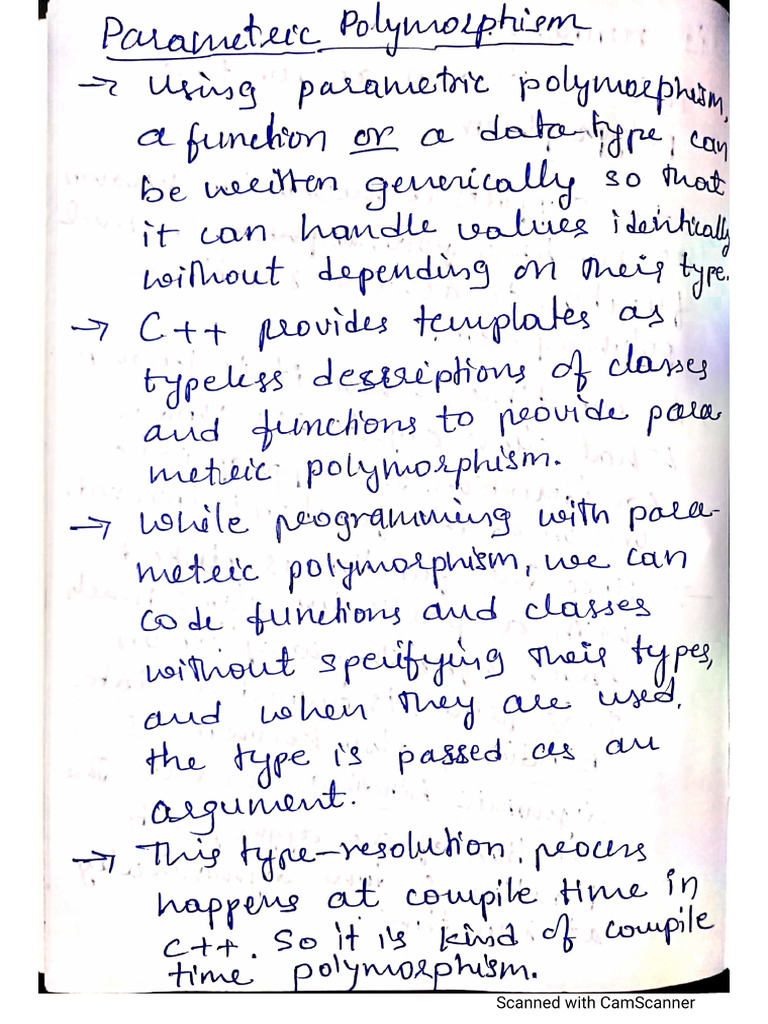 Parametric Polymorphism
→ Using parametric polymorphism,
a function or a data-type, can
be written generically so that
it can handle values identically
without depending on their type.
→ C++ provides templates as
typeless descriptions of classes
and functions to provide para
metric polymorphism.
→ While programming with para-
metric polymorphism, we can
code functions and classes
without specifying their types,
and when they are used,
the type is passed as an
argument.
→ This type-resolution process
happens at compile time in
C++. So it is kind of compile
time polymorphism.
Scanned with CamScanner